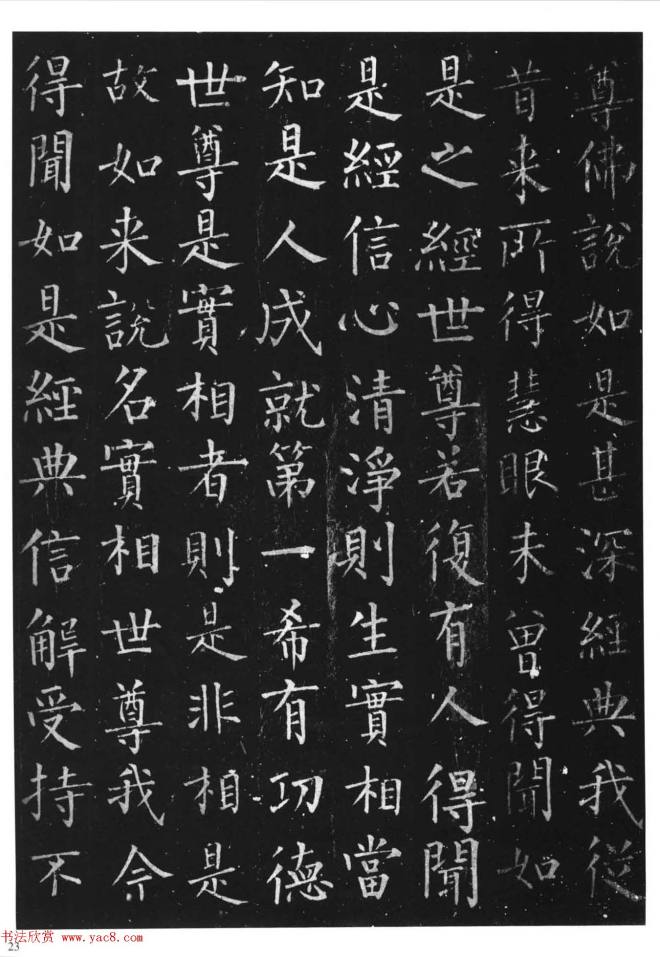 尊佛說如是甚深經典我從
昔来所得慧眼未曾得聞如
是之經世尊若復有人得聞
是經信心清淨則生實相當
知是人成就第一希有功德
世尊是實相者則是非相是
故如来說名實相世尊我今
得聞如是經典信解受持不
书法欣赏 www.yac8.com
23